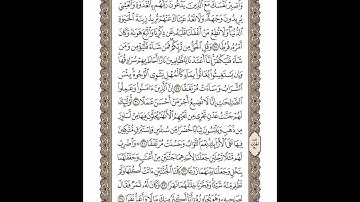 وَٱصْبِرْ نَفْسَكَ مَعَ ٱلَّذِينَ يَدْعُونَ رَبَّهُم بِٱلْغَدَوٰةِ وَٱلْعَشِىِّ
يُرِيدُونَ وَجْهَهُۥ وَلَا تَعْدُ عَيْنَاكَ عَنْهُمْ تُرِيدُ زِينَةَ ٱلْحَيَوٰةِ
ٱلدُّنْيَا وَلَا تُطِعْ مَنْ أَغْفَلْنَا قَلْبَهُۥ عَن ذِكْرِنَا وَٱتَّبَعَ هَوَىٰهُ وَكَانَ
أَمْرُهُۥ فُرُطًا ٢٨ وَقُلِ ٱلْحَقُّ مِن رَّبِّكُمْ فَمَن شَآءَ فَلْيُؤْمِن وَمَن
شَآءَ فَلْيَكْفُرْ إِنَّآ أَعْتَدْنَا لِلظَّٰلِمِينَ نَارًا أَحَاطَ بِهِمْ سُرَادِقُهَا
وَإِن يَسْتَغِيثُوا۟ يُغَاثُوا۟ بِمَآءٍ كَٱلْمُهْلِ يَشْوِى ٱلْوُجُوهَ بِئْسَ
ٱلشَّرَابُ وَسَآءَتْ مُرْتَفَقًا ٢٩ إِنَّ ٱلَّذِينَ ءَامَنُوا۟ وَعَمِلُوا۟
ٱلصَّٰلِحَٰتِ إِنَّا لَا نُضِيعُ أَجْرَ مَنْ أَحْسَنَ عَمَلًا ٣٠ أُو۟لَٰٓئِكَ
لَهُمْ جَنَّٰتُ عَدْنٍ تَجْرِى مِن تَحْتِهِمُ ٱلْأَنْهَٰرُ يُحَلَّوْنَ فِيهَا مِنْ أَسَاوِرَ
مِن ذَهَبٍ وَيَلْبَسُونَ ثِيَابًا خُضْرًا مِّن سُندُسٍ وَإِسْتَبْرَقٍ مُّتَّكِـِٔينَ
فِيهَا عَلَى ٱلْأَرَآئِكِ نِعْمَ ٱلثَّوَابُ وَحَسُنَتْ مُرْتَفَقًا ٣١ وَٱضْرِبْ
لَهُم مَّثَلًا رَّجُلَيْنِ جَعَلْنَا لِأَحَدِهِمَا جَنَّتَيْنِ مِنْ أَعْنَٰبٍ وَحَفَفْنَٰهُمَا
بِنَخْلٍ وَجَعَلْنَا بَيْنَهُمَا زَرْعًا ٣٢ كِلْتَا ٱلْجَنَّتَيْنِ ءَاتَتْ أُكُلَهَا وَلَمْ
تَظْلِم مِّنْهُ شَيْـًٔا وَفَجَّرْنَا خِلَٰلَهُمَا نَهَرًا ٣٣ وَكَانَ لَهُۥ ثَمَرٌ فَقَالَ
لِصَٰحِبِهِۦ وَهُوَ يُحَاوِرُهُۥٓ أَنَا۠ أَكْثَرُ مِنكَ مَالًا وَأَعَزُّ نَفَرًا ٣٤